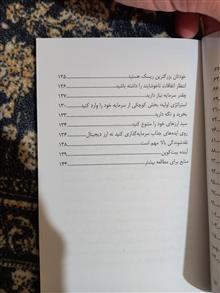 خودتان بزرگترین ریسک هستید ۱۲۵
انتظار اتفاقات ناخوشایند را داشته باشید ۱۲۶
چقدر سرمایه نیاز دارید ۱۲۷
استراتژی اولیه: بخش کوچکی از سرمایه خود را وارد کنید ۱۳۰
بخرید و نگه دارید ۱۳۳
سبد ارزهای خود را متنوع کنید ۱۳۴
روی ایده‌های جذاب سرمایه‌گذاری کنید نه ارز دیجیتال ۱۳۶
نقدشوندگی بالا مهم است ۱۳۸
آینده بیت‌کوین ۱۳۹
منابع برای مطالعه بیشتر ۱۴۴